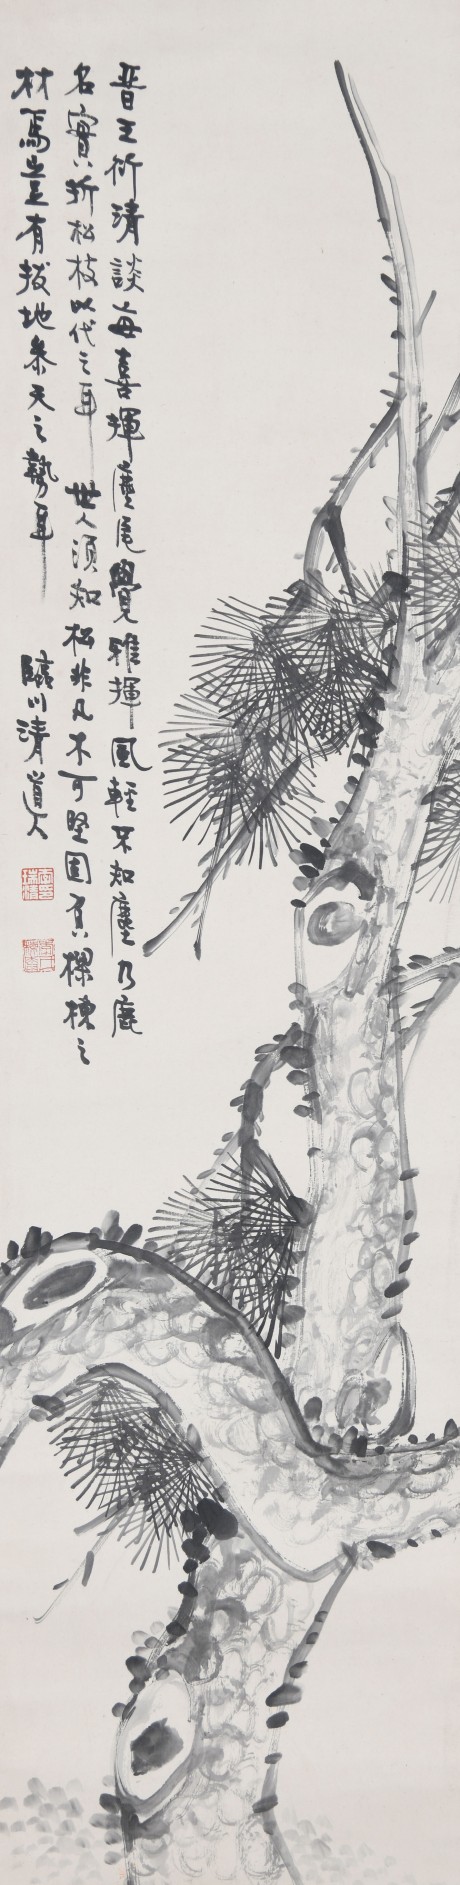 晉王衍清談每喜揮麈尾覺雅揮風輕不知麈乃鹿
名實折松枝以代之耳世人須知松非凡木可堅固負樑棟之
材焉豈有拔地參天之勢耳
臨川清道人